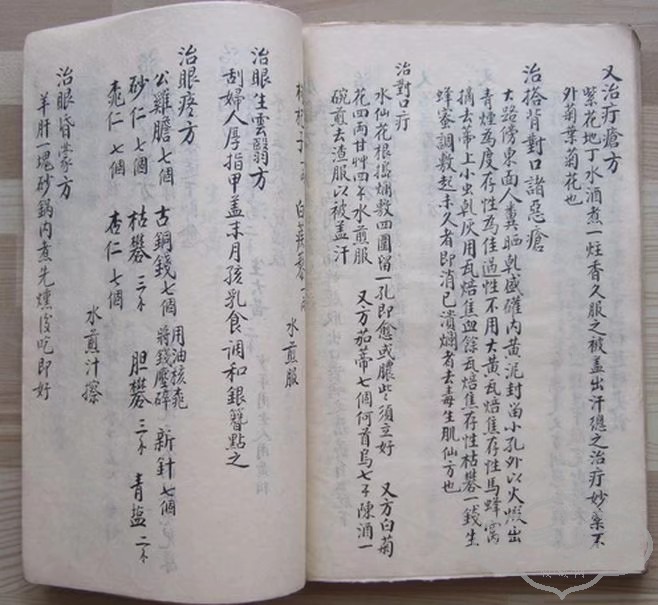 又治疔瘡方
紫花地丁水酒煮一炷香久服之被盖出汗總之治疔妙藥不
外菊葉菊花也
治搭背對口諸惡瘡
大路傍東面人糞晒乾盛礶内黄泥封固小孔外以火煅出
青煙為度存性為佳過性不用大黄瓦焙焦存性馬蜂窩
摘去蒂上小虫乾灰用瓦焙焦血餘瓦焙焦存性枯礬一錢生
蜂蜜調敷起未久者即消已潰爛者去毒生肌仙方也
治對口疔
水仙花根搗爛敷四圍留一孔即愈或膿出須立好 又方白菊
花四两甘艸四个水煎服 又方茄蒂七個何首烏七个陳酒一
碗煎去渣服以被盖汗
水煎服
治眼生雲翳方
刮婦人厚指甲盖末月孩乳食調和銀簪點之
治眼疼方
公雞膽七個 古銅錢七個 用油核桃將錢壓碎 新針七個
砂仁七個 枯礬三个 胆礬三个 青鹽二个
桃仁七個 杏仁七個 水煎汁擦
治眼昏蒙方
羊肝一塊砂鍋内煮先燻後吃即好